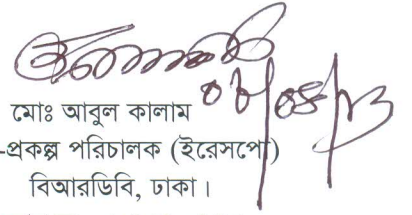 মোঃ আবুল কালাম
-প্রকল্প পরিচালক (ইরেসপো)
বিআরডিবি, ঢাকা।